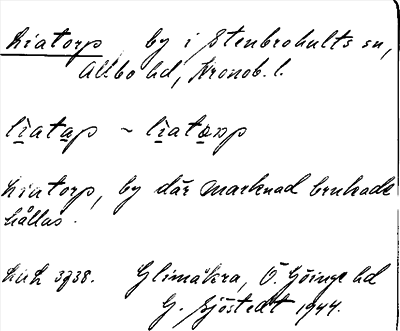 Liatorp by i Stenbrohults sn,
Allbo hd, Kronob. l.
li̱ata̱p ~ li̱ato̱rp
Liatorp, by där marknad brukade
hållas.
LUH 3938. Glimåkra, Ö. Göinge hd
G. Sjöstedt 1944.